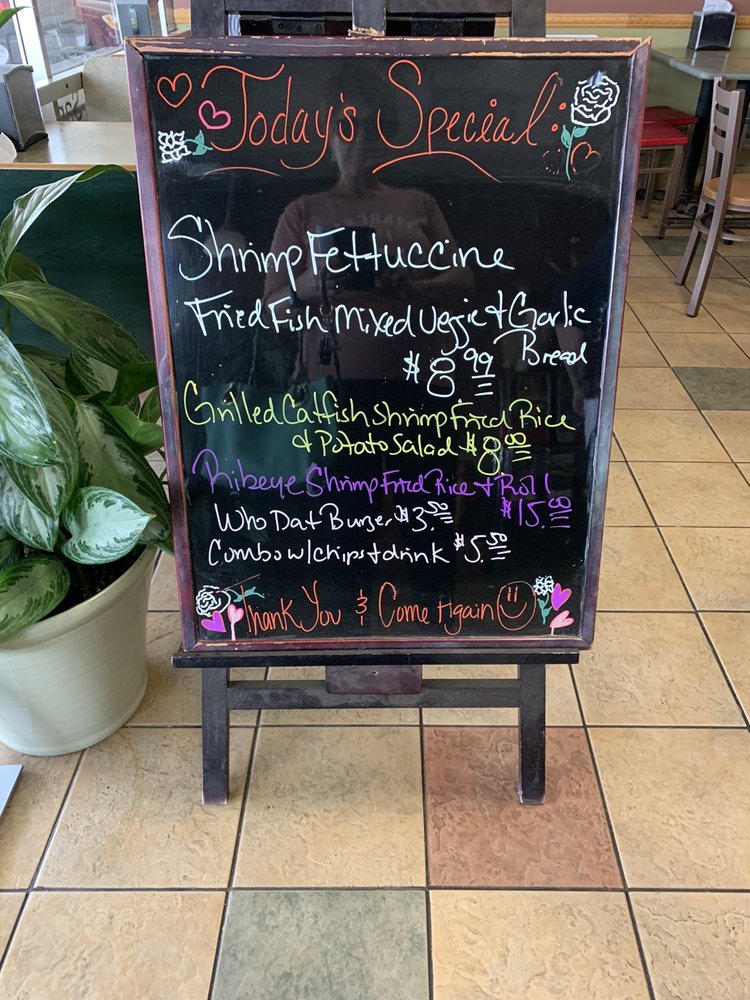 Today's Special
Shrimp Fettuccine
Fried Fish Mixed Veggie & Garlic
Bread
$8.99
Grilled Catfish Shrimp Fried Rice
& Potato Salad $8.00
Ribeye Shrimp Fried Rice & Roll
$15.00
Who Dat Burger $3.50
Combo w/chips & drink $5.50
Thank You & Come Again